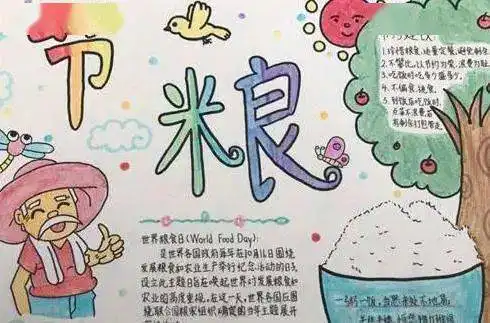 节
粮
1.珍惜粮食,适量定餐,避免剩
2.不攀比,以节约为荣,浪费为耻
3.吃饭时吃多少盛多少。
4.不偏食、挑食。
5.到饭店吃饭时,
点菜不浪费,若
有剩余打包带走
世界粮食日(World Food Day):
是世界各国政府每年在10月16日围绕
发展粮食和农业生产举行纪念活动的日子,
设立此主题日在唤起世界对发展粮食和
农业的高度重视。在这一天,世界各国丘围
绕联合国粮农组织确定的当年主题展开
一粥一饭,当思来处不易,